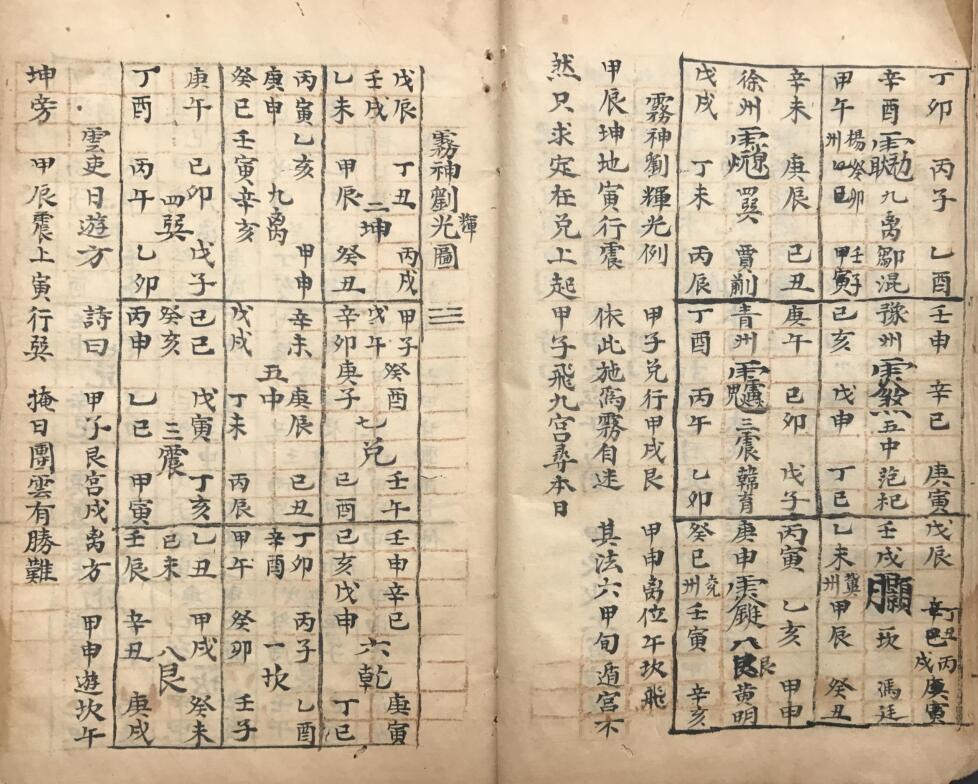 丁卯 丙子 乙酉
辛酉 九离 鄒混
甲午 楊州 癸卯 壬子 甲寅
辛未 庚辰 己丑
徐州 四巽 賈前
戊戌 丁未 丙辰
壬申 辛巳 庚寅
豫州 五中 范杞
己亥 戊申 丁巳
庚午 己卯 戊子
青州 三震 韓育
丁酉 丙午 乙卯
戊辰 丁丑 丙戌 庚寅
壬戌 一坎 馮廷
乙未 冀州 甲辰 癸丑
丙寅 乙亥 甲申
庚申 八艮 黄明
癸巳 兖州 壬寅 辛亥
霧神劉輝光例 甲子兑行甲戌艮 甲申离位午坎飛
甲辰坤地寅行震 依此施爲霧自迷 其法六甲旬遁宫不
然只求定在兑上起甲子飛九宫尋本日
霧神劉光輝圖 三三
戊辰 丁丑 丙戌
壬戌 二坤
乙未 甲辰 癸丑
丙寅 乙亥 甲申
庚申 九离
癸巳 壬寅 辛亥
庚午 己卯 戊子
四巽
丁酉 丙午 乙卯
甲子 癸酉 壬午
戊午 七兑
辛卯 庚子 己酉
辛未 庚辰 己丑
五中
戊戌 丁未 丙辰
己巳 戊寅 丁亥
癸亥 三震
丙申 乙巳 甲寅
壬申 辛巳 庚寅
六乾
己亥 戊申 丁巳
丁卯 丙子 乙酉
辛酉 一坎
甲午 癸卯 壬子
乙丑 甲戌 癸未
己未 八艮
壬辰 辛丑 庚戌
雲吏日遊方 詩曰 甲子艮宫戌离方 甲申遊坎午
坤旁 甲辰震上寅行巽 掩日團雲有勝難